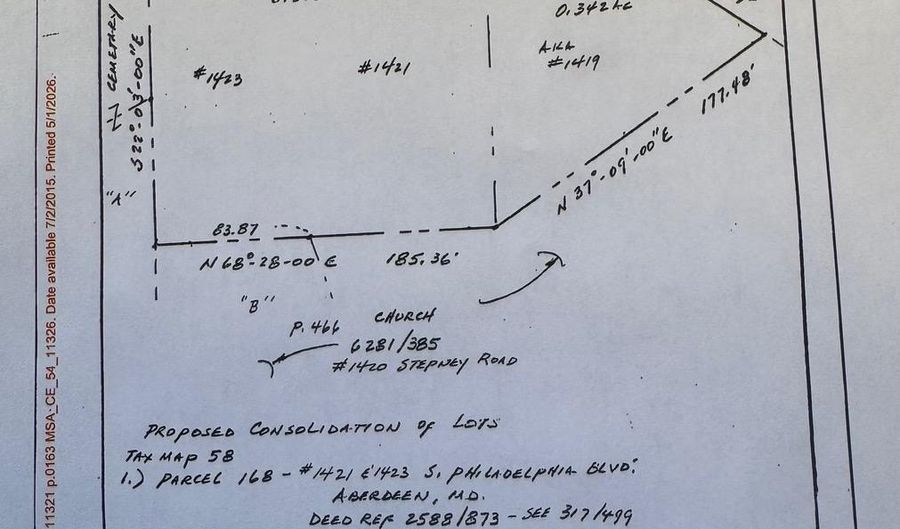 0.342 AC
AKA
#1419
#1423
#1421
177.48'
N 37°-09'-00" E
CEMETARY
S22°-03'-00" E
"A"
83.87
N 68°-28-00 E
185.36'
"B"
P. 466
CHURCH
6281/385
#1420 STEPNEY ROAD
PROPOSED CONSOLIDATION of LOTS
TAX MAP 58
1.) PARCEL 168 - #1421 & 1423 S. PHILADELPHIA BLVD.
ABERDEEN, MD.
DEED REF 2588/873 - SEE 317/499
11321 p.0163 MSA_CE_54_11326. Date available 7/2/2015. Printed 5/1/2026.